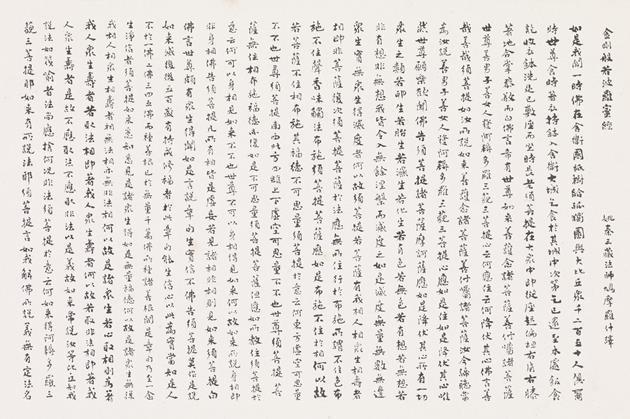 金剛般若波羅蜜經 姚秦三藏法師鳩摩羅什譯
如是我聞一時佛在舍衛國祇樹給孤獨園與大比丘衆千二百五十人俱爾
時世尊食時著衣持鉢入舍衛大城乞食於其城中次第乞已還至本處飯食
訖收衣鉢洗足已敷座而坐時長老須菩提在大衆中即從座起偏袒右肩右膝
著地合掌恭敬而白佛言希有世尊如來善護念諸菩薩善付囑諸菩薩
世尊善男子善女人發阿耨多羅三藐三菩提心云何應住云何降伏其心佛言善
哉善哉須菩提如汝所說如來善護念諸菩薩善付囑諸菩薩汝今諦聽當
爲汝說善男子善女人發阿耨多羅三藐三菩提心應如是住如是降伏其心唯
然世尊願樂欲聞佛告須菩提諸菩薩摩訶薩應如是降伏其心所有一切
衆生之類若卵生若胎生若濕生若化生若有色若無色若有想若無想若
非有想非無想我皆令入無餘涅槃而滅度之如是滅度無量無數無邊
衆生實無衆生得滅度者何以故須菩提若菩薩有我相人相衆生相壽者
相即非菩薩復次須菩提菩薩於法應無所住行於布施所謂不住色布
施不住聲香味觸法布施須菩提菩薩應如是布施不住於相何以故
若菩薩不住相布施其福德不可思量須菩提於意云何東方虛空可思量
不不也世尊須菩提南西北方四維上下虛空可思量不不也世尊須菩提菩
薩無住相布施福德亦復如是不可思量須菩提菩薩但應如所教住須菩提
於意云何可以身相見如來不不也世尊不可以身相得見如來何以故如來所說身相即
非身相佛告須菩提凡所有相皆是虛妄若見諸相非相則見如來須菩提白
佛言世尊頗有衆生得聞如是言說章句生實信不佛告須菩提莫作是說
如來滅後後五百歲有持戒修福者於此章句能生信心以此爲實當知是人
不於一佛二佛三四五佛而種善根已於無量千萬佛所種諸善根聞是章句乃至一念
生淨信者須菩提如來悉知悉見是諸衆生得如是無量福德何以故是諸衆生無復
我相人相衆生相壽者相無法相亦無非法相何以故是諸衆生若心取相則爲著
我人衆生壽者若取法相即著我人衆生壽者何以故若取非法相即著我
人衆生壽者是故不應取法不應取非法以是義故如來常說汝等比丘知我
說法如筏喻者法尚應捨何況非法須菩提於意云何如來得阿耨多羅三
藐三菩提耶如來有所說法耶須菩提言如我解佛所說義無有定法名